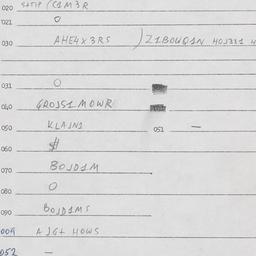 020 SHTIP (C1M3R
021 O
030 AHE4X3RS )Z1BOUQ1N HOJ3X1 H
031 O
040 GROJS1MOWR
050 KLAJN1 051 —
060 #
070 BOJD1M
080 O
090 BOJD1MS
00A AJGT HOWS
052 —